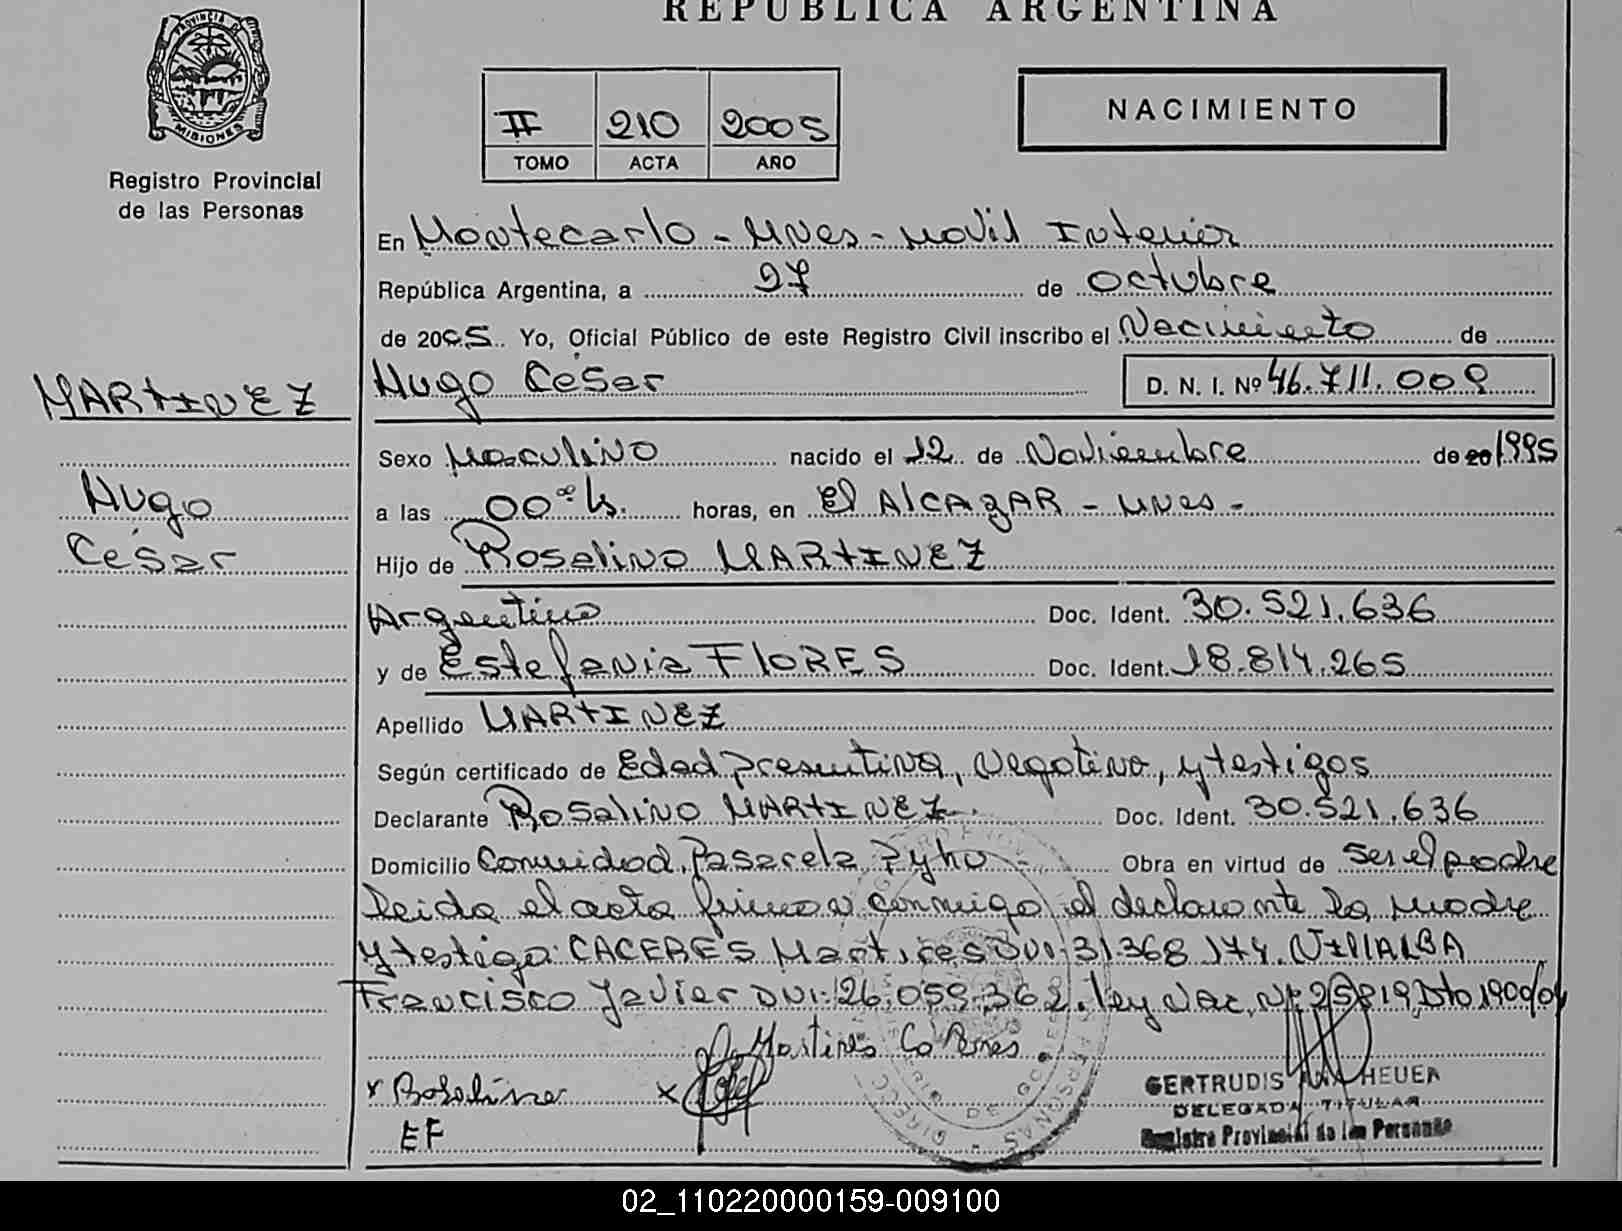 REPUBLICA ARGENTINA
PROVINCIA D
MISIONES
Registro Provincial
de las Personas
II 210 2005
TOMO ACTA AÑO
NACIMIENTO
En Montecarlo - Mnes - Movil Interior
República Argentina, a 27 de Octubre
de 2005 Yo, Oficial Público de este Registro Civil inscribo el Nacimiento de
MARTINEZ
Hugo César
D. N. I. Nº 46.711.009
Sexo Masculino nacido el 12 de Noviembre de 20 1995
Hugo
a las 00 hs. horas, en El Alcazar - Mnes -
César
Hijo de Roselino MARTINEZ
Argentino Doc. Ident. 30.521.636
y de Estefania FLORES Doc. Ident. 18.814.265
Apellido MARTINEZ
Según certificado de Edad Presuntiva, Negativa, y testigos
Declarante Rosalino MARTINEZ Doc. Ident. 30.521.636
Domicilio Comunidad Pasarela Pyhu Obra en virtud de Ser el padre
leida el acta firman conmigo el declarante la madre
y testigo: CACERES Martires DNI: 31.368.174. VILLALBA
Francisco Javier DNI: 26.059.362. ley Nac. Nº 25819, Dto 1900/04
Martires
Roselino
EF
GERTRUDIS HEUER
DELEGADA TITULAR
Registro Provincial de las Personas
02_110220000159-009100